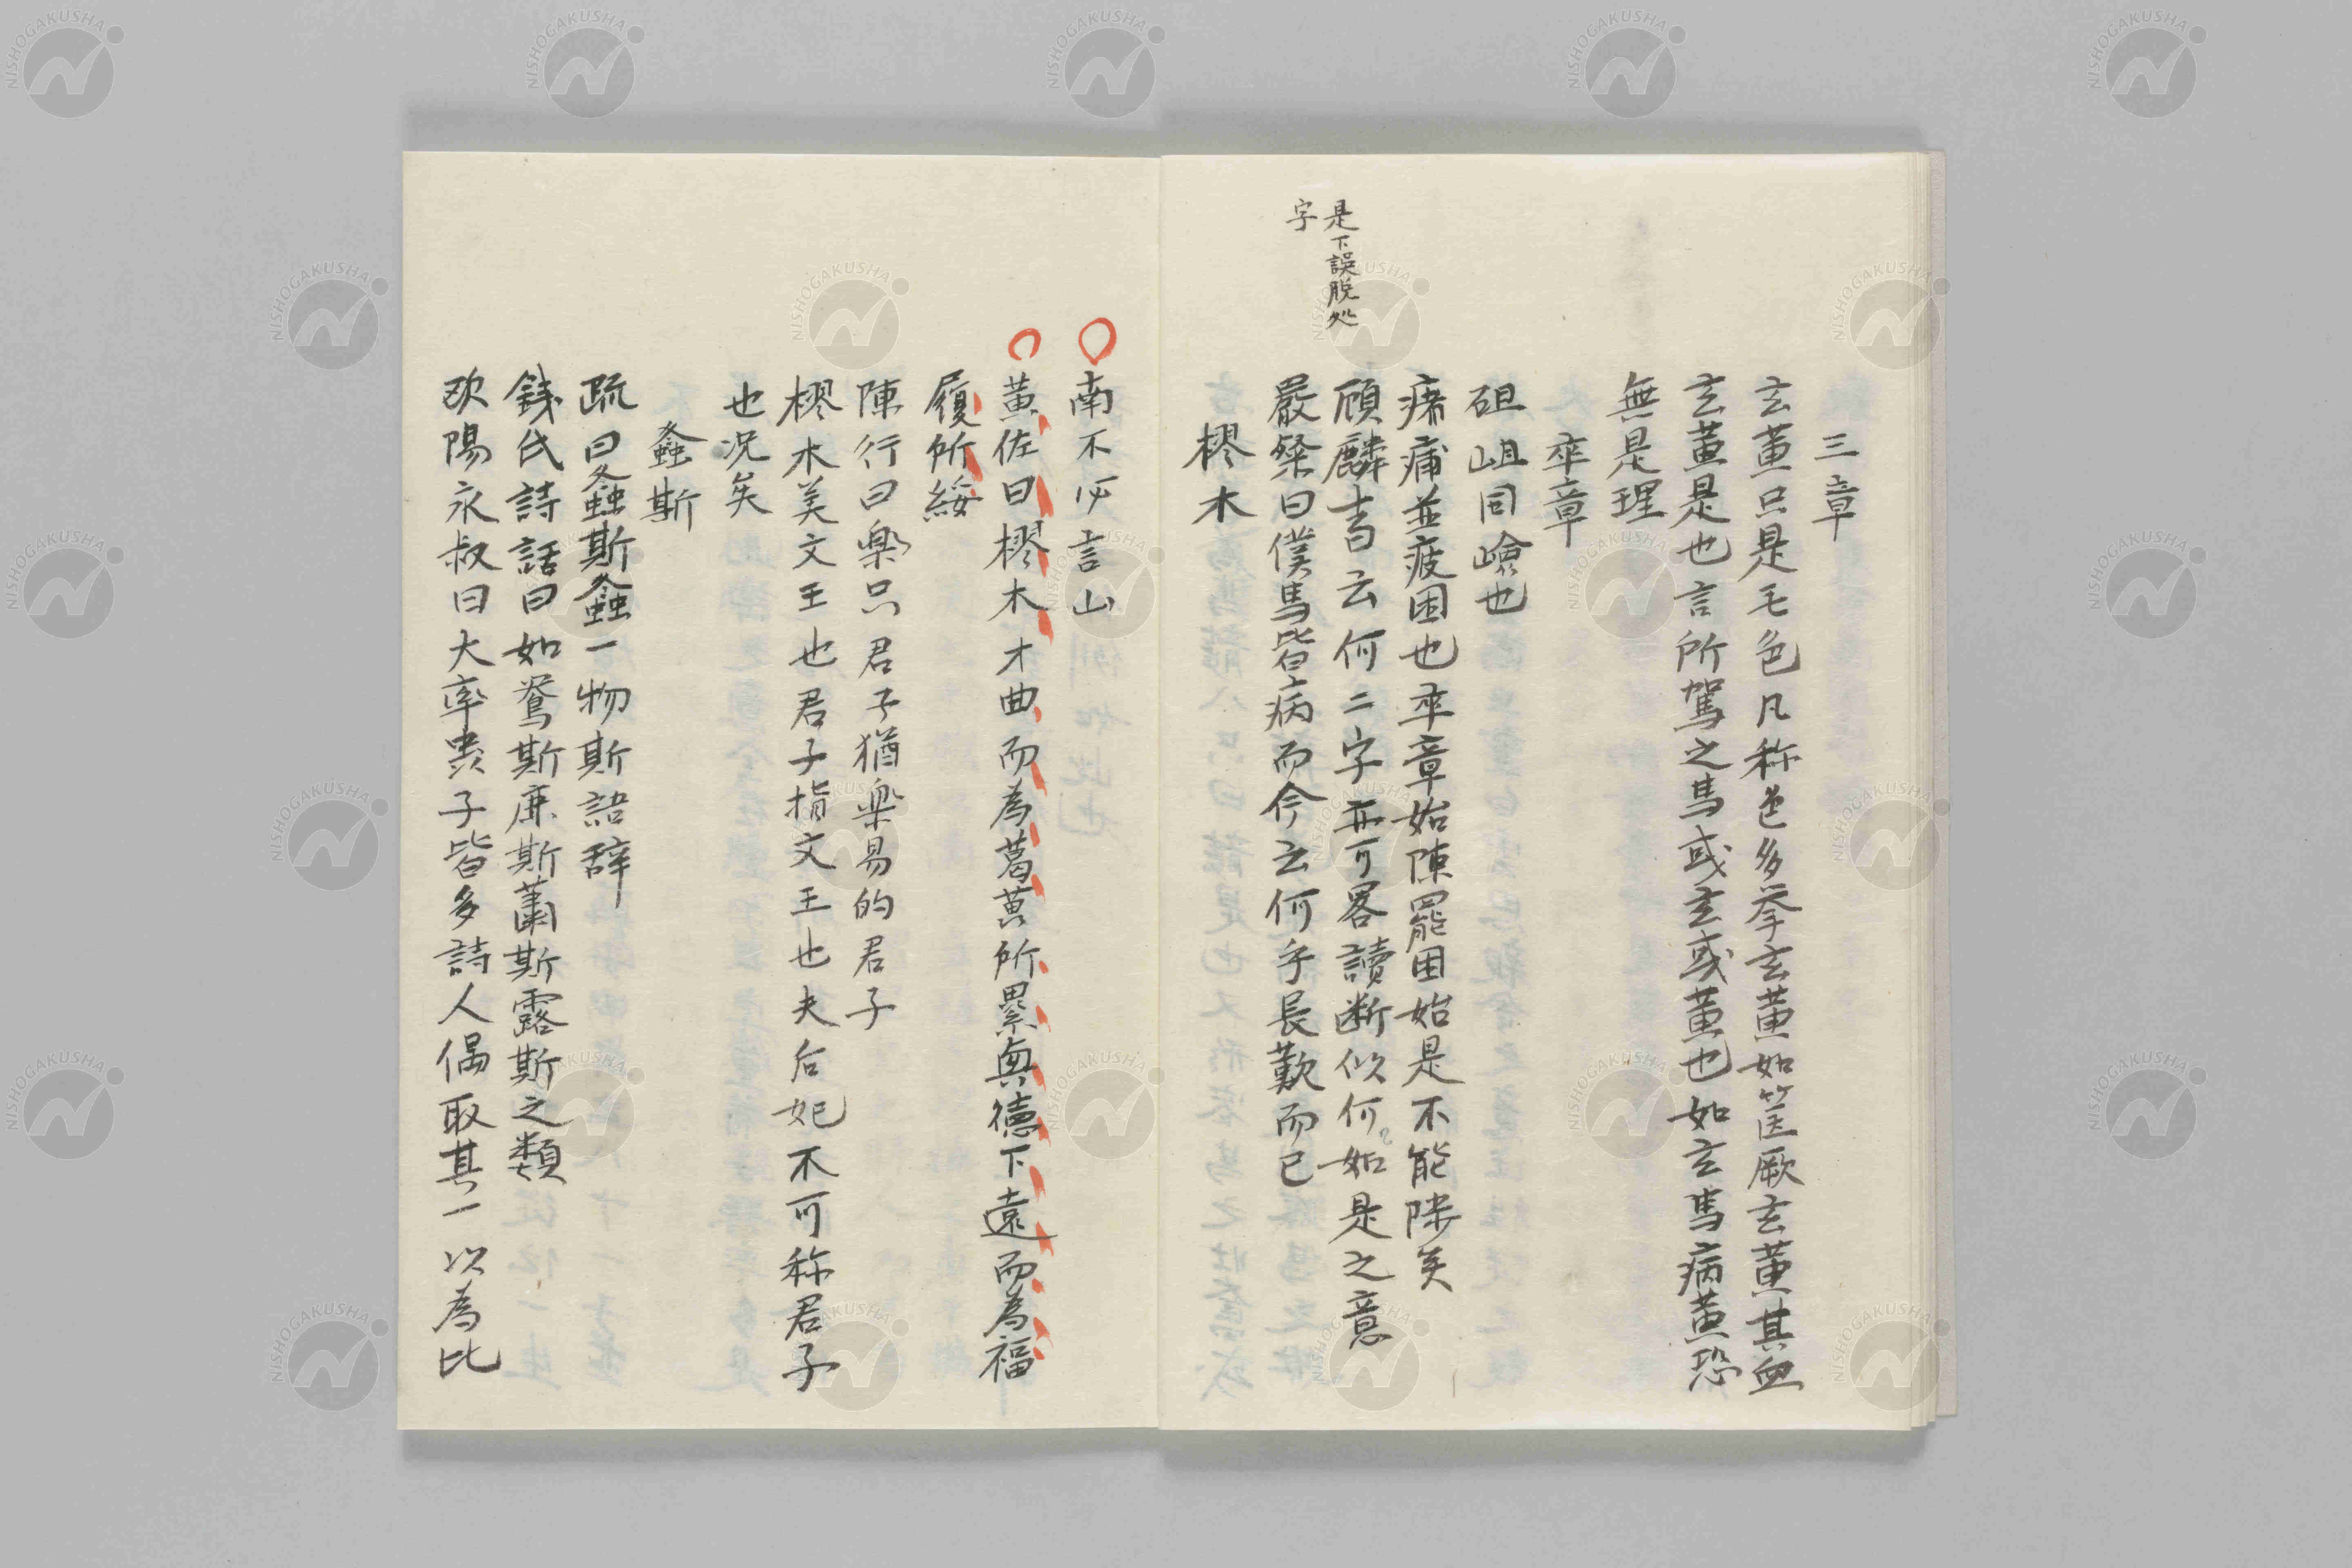 三章
玄黄只是毛色凡称色多挙玄黄如篚厥玄黄其血
玄黄是也言所駕之馬或玄或黄也如玄馬病黄恐
無是理
卒章
砠岨同嶮也
瘏痡並疲困也卒章始陳罷困始是不能陟矣
是下誤脱処
字
顧麟士云云何二字亦可畧讀断似何如是之意
嚴粲曰僕馬皆病而今云何乎長歎而已
樛木
南不必言山
黄佐曰樛木才曲而為葛藟所累無德下遠而為福
履所綏
陳行曰樂只君子猶樂易的君子
樛木美文王也君子指文王也夫后妃不可称君子
也况矣
螽斯
疏曰螽斯螽一物斯語辞
錢氏詩話曰如鴛斯鹿斯蕭斯露斯之類
欧陽永叔曰大率蟲子皆多詩人偶取其一以為比